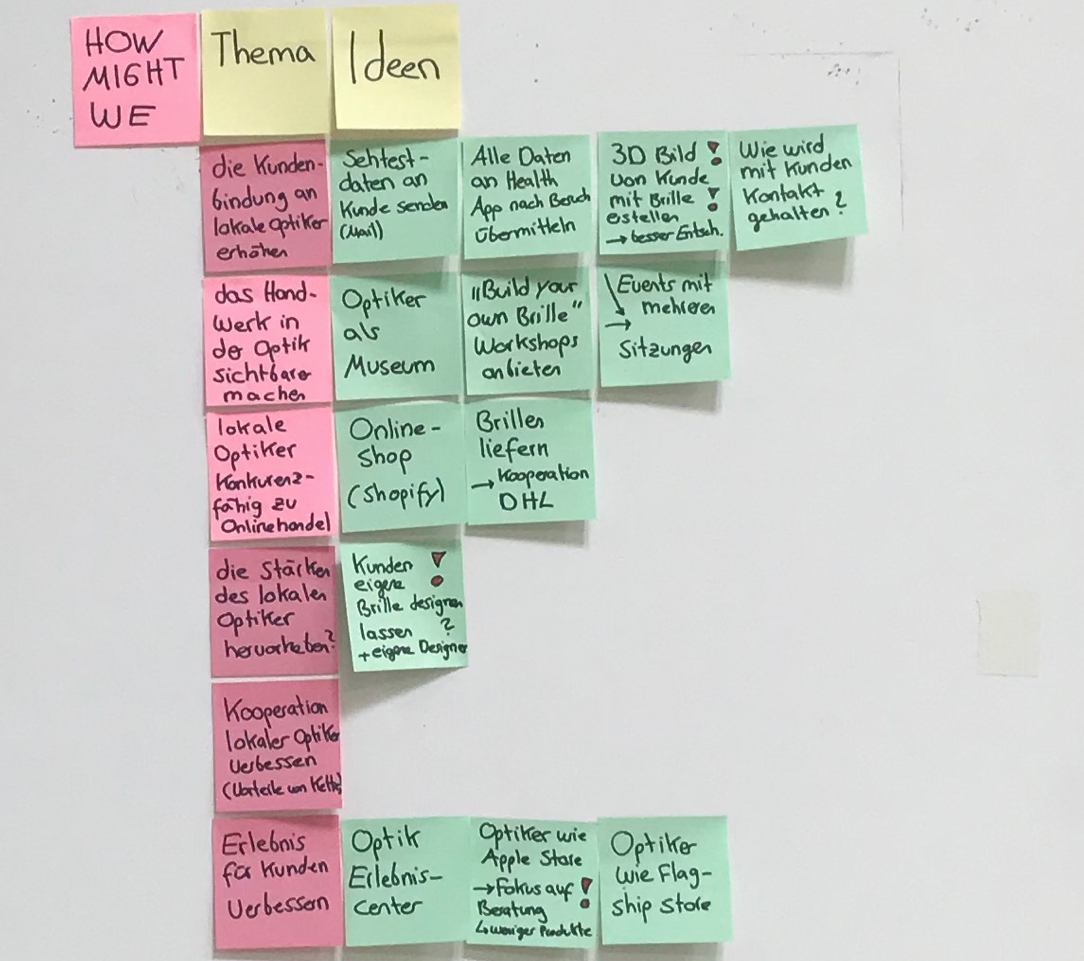 HOW
MIGHT
WE
Thema
Ideen
die Kunden-
bindung an
lokale Optiker
erhöhen
Sehtest-
daten an
Kunde senden
(Mail)
Alle Daten
an Health
App nach Besuch
übermitteln
3D Bild !
von Kunde
mit Brille !
erstellen
→ besser Entsch.
Wie wird
mit Kunden
Kontakt
gehalten?
das Hand-
werk in
der Optik
sichtbarer
machen
Optiker
als
Museum
„Build your
own Brille"
Workshops
anbieten
Events mit
→ mehreren
Sitzungen
lokale
Optiker
Konkurenz-
fähig zu
Onlinehandel
Online-
Shop
(Shopify)
Brillen
liefern
→ Kooperation
DHL
die Stärken
des lokalen
Optiker
hervorheben?
Kunden !
eigene
Brille designen
lassen ?
+ eigene Designer
Kooperation
lokaler Optiker
verbessen
(Vorteile von Kette)
Erlebnis
für Kunden
Verbessern
Optik
Erlebnis-
center
Optiker wie
Apple Store
→ Fokus auf !
Beratung
↳ weniger Produkte
Optiker
wie Flag-
ship store